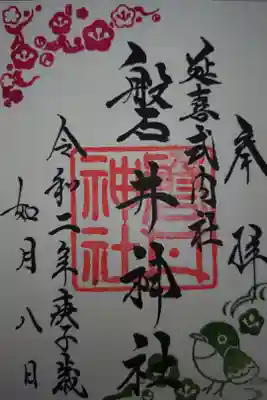 奉拝
延喜式内社
磐井神社
磐井神社
令和二年庚子歳
如月八日